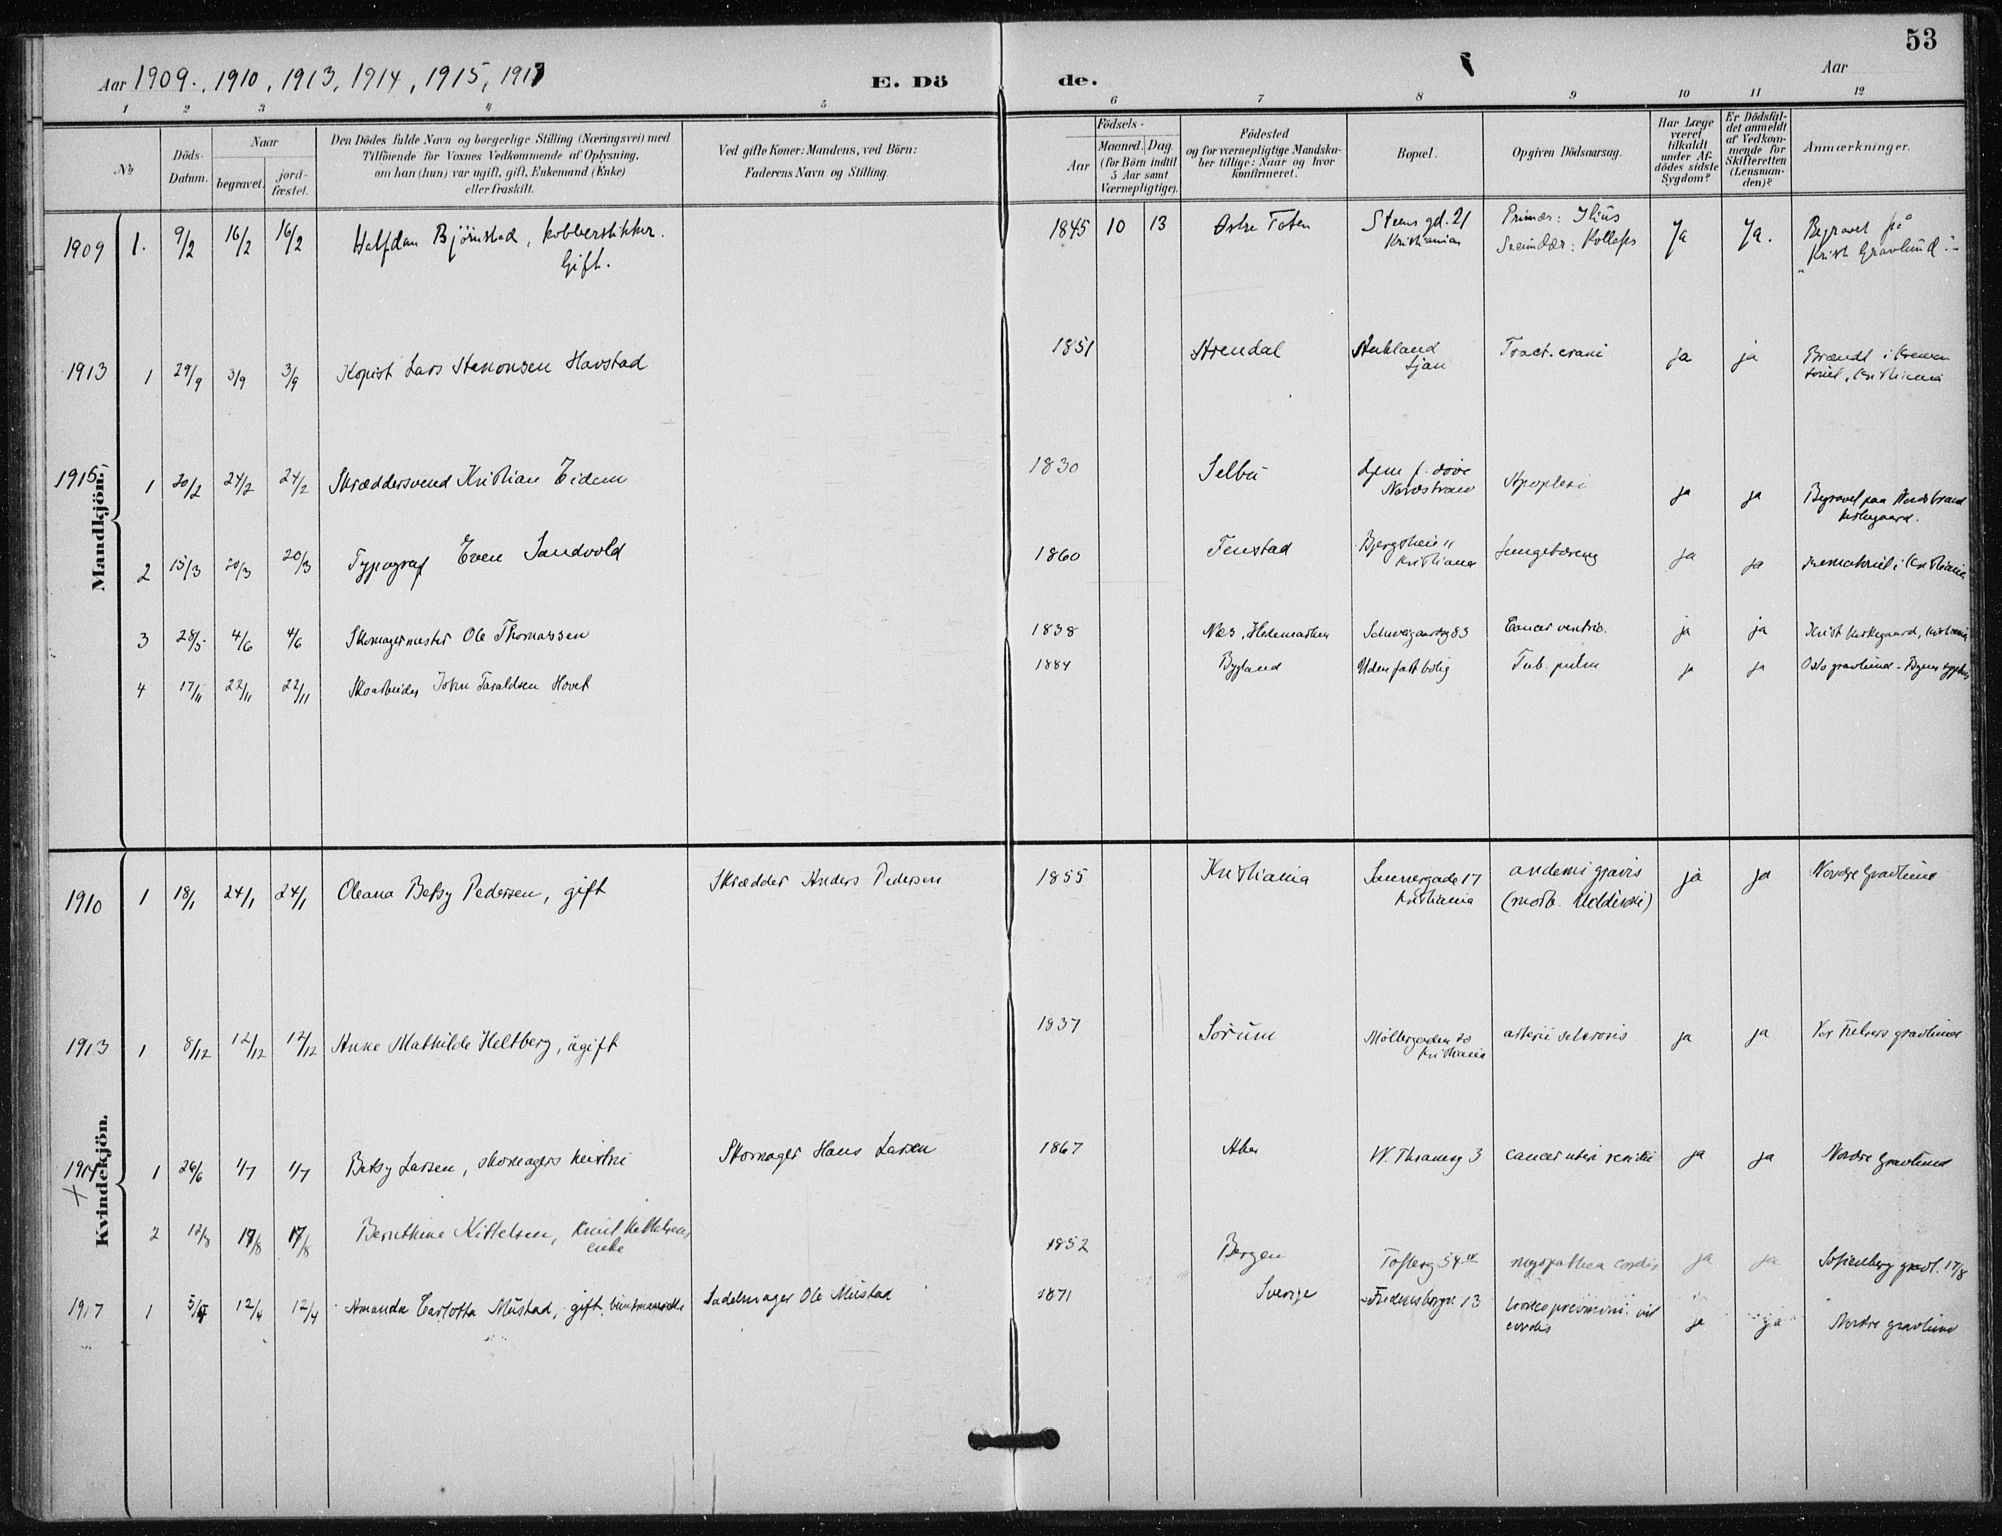 53
Aar 1909., 1910, 1913, 1914, 1915, 1917
E. Dö
de.
Aar
1 2 3 4 5 6 7 8 9 10 11 12
№
Döds-
Datum.
Naar
begravet.
jord-
fæstet.
Den Dödes fulde Navn og borgerlige Stilling (Næringsvei) med
Tilföiende for Voxnes Vedkommende af Oplysning,
om han (hun) var ugift, gift, Enkemand (Enke)
eller fraskilt.
Ved gifte Koner: Mandens, ved Börn:
Faderens Navn og Stilling.
Födsels-
Aar
Maaned. Dag.
(for Börn indtil
5 Aar samt
Værnepligtige).
Födested
og for værnepligtige Mandska-
ber tillige: Naar og hvor
konfirmeret.
Bopæl.
Opgiven Dödsaarsag.
Har Læge
været
tilkaldt
under Af-
dödes sidste
Sygdom?
Er Dödsfal-
det anmeldt
af Vedkom-
mende for
Skifteretten
(Lensman-
den)?
Anmærkninger.
Mandkjön.
1909 1. 9/2 16/2 16/2 Halfdan Björnstad, kobberstikker.
Gift.
1845 10 13 Østre Toten
Steens gd. 21
Kristiania
Primær: Ilius
Secundær: Kollaps
Ja Ja.
Begravet på
"Krist Gravlund".
1913 1 29/9 3/9 3/9 Kopist Lars Havstad
1851 Arendal
Ljan
Tract. crani
ja ja
Brændt i Krema-
toriet, Kristiania
1915 1 20/2 24/2 24/2 Skræddersvend Kristian Eidem
1830 Selbu
Hjem f. döve
Nordstrand
Apoplexi
ja ja
Begravet paa Nordstrand
kirkegaard.
2 15/3 20/3 20/3 Typograf Even Sandvold
1860 Tenstad
Kristiania
ja ja
i Kristiania
3 28/5 4/6 4/6 Skomagermester Ole Thomassen
1838 Næs, Hedemarken Schweigaardsg 83 Cancer ventric. ja ja Krist kirkegaard, Kristiania
4 17/11 22/11 22/11 Skoarbeider John Taraldsen Hovet
1884 Bygland Uden fast bolig Tub. pulm ja ja Oslo gravlund -
Kvindekjön.
1910 1 18/1 24/1 24/1 Oleana Betsy Pedersen, gift
Skrædder Anders Pedersen
1855 Kristiania
Sannergade 17
Kristiania
gravis
(morb. Addisoni)
ja ja Nordre Gravlund
1913 1 8/12 12/12 12/12 Anne Mathilde Heltberg, ugift
1837 Sörum
Möllergaden 20
Kristiania
arterie sclerosis
ja ja Vor Frelsers gravlund
1914 1 26/6 1/7 1/7 Betsy Larsen, skomagers hustru
Skomager Hans Larsen
1867 Aker W. Thranesg 3 cancer uteri ja ja Nordre Gravlund
+
2 12/8 17/8 17/8 Bernthine Kittelsen, Knut Kittelsens
enke
1852 Bergen Tofteg 54 IV myopathia cordis ja ja Sofienberg gravl. 17/8
1917 1 5/4 12/4 12/4 Amanda Carlotta Mustad, gift
Sadelmager Ole Mustad
1871 Sverige
13
vit
cordis
ja ja Nordre gravlund